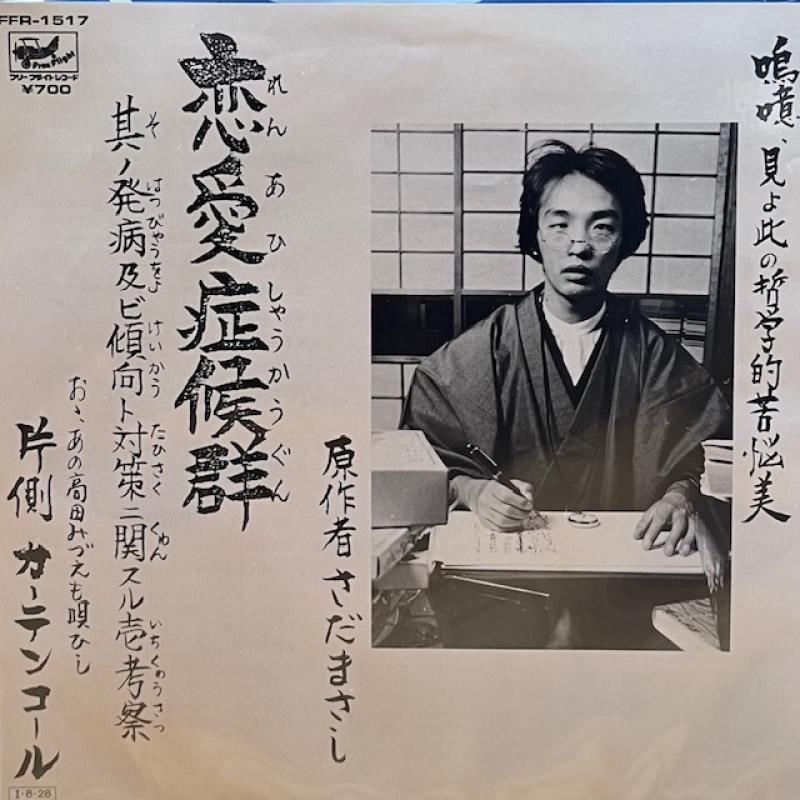 FFR-1517
Free Flight
フリーフライトレコード
¥700
嗚呼噫、見よ此の哲学的苦悩美
原作者 さだまさし
恋愛症候群
れんあひしゃうかうぐん
其ノ発病及ビ傾向ト対策ニ関スル壱考察
そ はつびゃうをよ けいかう たひさく くゎん いちくゎうさつ
おゝ、あの高田みづえも唄ひし
片側 カーテンコール
I·8·28